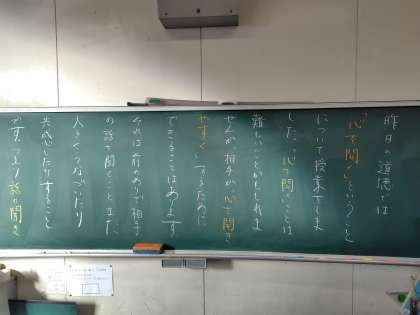 昨日の道徳では
「心で聞く」ということ
について授業でしま
した。心で聞くことは
難しいことかもしれま
せんが相手が心で聞き
やすくするために
できることはあります
それは前のめりで相手
の話を聞くこと、また、
大きくうなづいたり
共感したりすること
です。つまり話の聞き